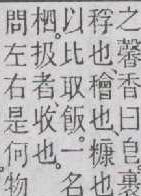 之馨香曰皀。裹
稃也、𥢶也、糠也
以比取飯。一名
柶。扱者、收也。
問左右是何物